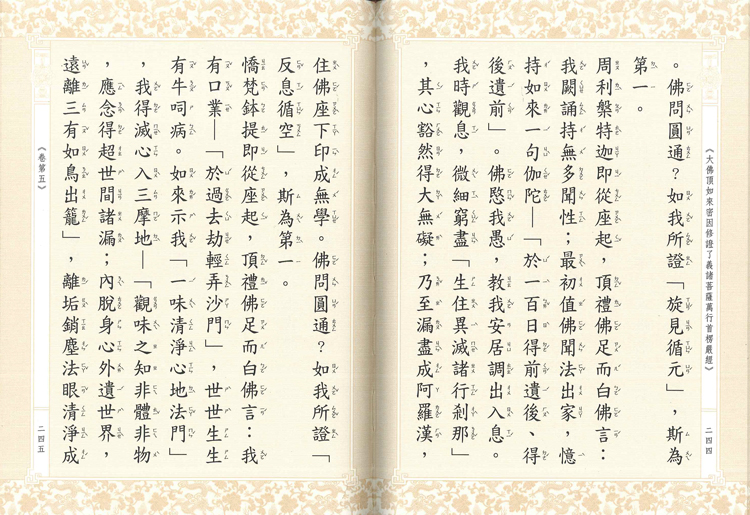 《大佛頂如來密因修證了義諸菩薩萬行首楞嚴經》
二四四
。佛問圓通？如我所證「旋見循元」，斯為
第一。
周利槃特迦即從座起，頂禮佛足而白佛言：
我闕誦持無多聞性；最初值佛聞法出家，憶
持如來一句伽陀—「於一百日得前遺後、得
後遺前」。佛愍我愚，教我安居調出入息。
我時觀息，微細窮盡「生住異滅諸行剎那」
，其心豁然得大無礙；乃至漏盡成阿羅漢，
住佛座下印成無學。佛問圓通？如我所證「
反息循空」，斯為第一。
憍梵鉢提即從座起，頂禮佛足而白佛言：我
有口業—「於過去劫輕弄沙門」，世世生生
有牛呞病。如來示我「一味清淨心地法門」
，我得滅心入三摩地—「觀味之知非體非物
，應念得超世間諸漏；內脫身心外遺世界，
遠離三有如鳥出籠」，離垢銷塵法眼清淨成
《卷第五》
二四五